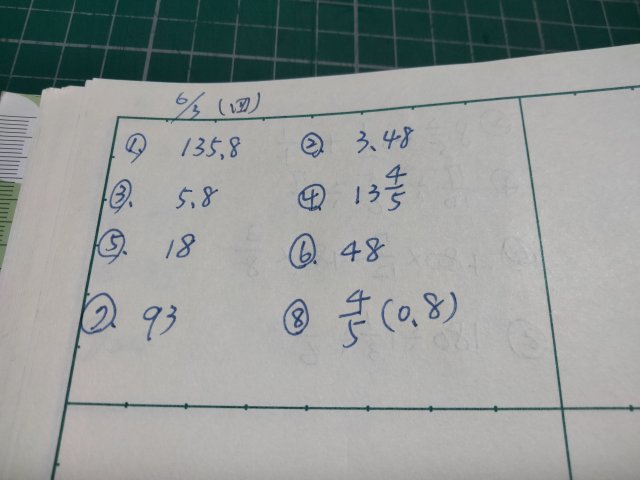 6/3 (回)
①. 135.8 ②. 3.48
③. 5.8 ④. 13 4/5
⑤. 18 ⑥. 48
⑦. 93 ⑧ 4/5 (0.8)